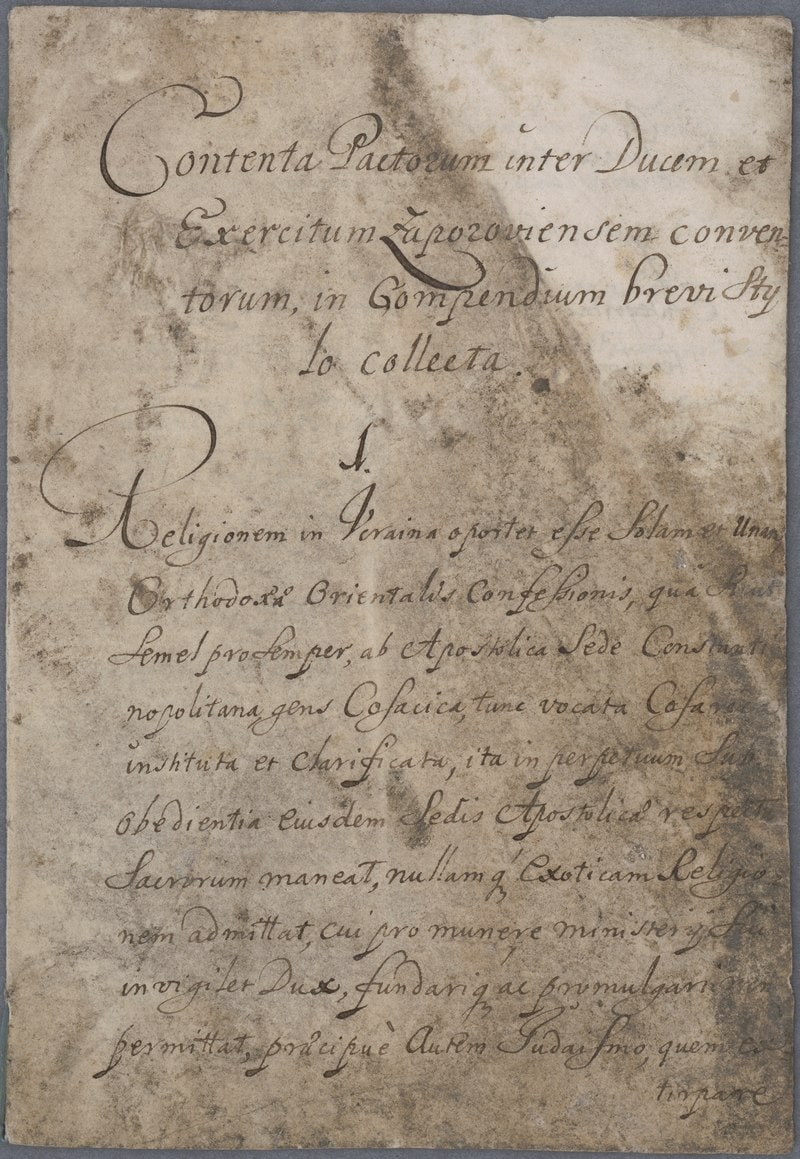 Contenta Pactorum inter Ducem et
Exercitum Zaporoviensem conven-
torum, in Compendium brevi Sty
lo collecta.
1.
Religionem in Vcraina oportet esse Solam et Unam
Orthodoxæ Orientalis Confessionis, quâ
Semel pro Semper, ab Apostolica Sede Constanti
nopolitana, gens Cosacica, tunc vocata
instituta et clarificata, ita in perpetuum Sub
obedientia eiusdem Sedis Apostolicæ respectu
Sacrorum maneat, nullamq́ exoticam Religio
nem admittat, cui pro munere ministerij Sui
invigilet Dux, fundariq́ ac promulgari non
permittat, præcipuè Autem Judaismo, quem
tirpare